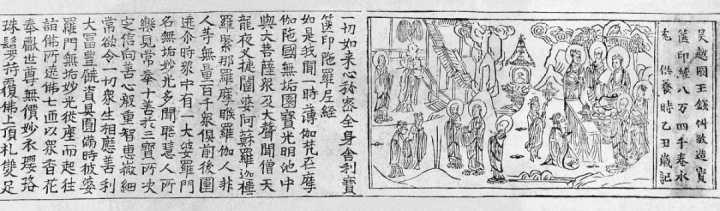 吴越國王錢俶敬造寳
篋印經八万四千卷永
充供養時乙丑歲記
一切如来心秘密全身舍利寳
篋印陁羅尼經
如是我聞一時薄伽梵在摩
伽陁國無垢園寳光明池中
與大菩薩衆及大聲聞僧天
龍夜叉揵闥婆阿蘇羅迦樓
羅緊那羅摩睺羅伽人非
人等無量百千衆俱前後圍
遶尒時衆中有一大婆羅門
名無垢妙光多聞聰慧人所
樂見常奉十善於三寳所决
定信向善心殷重智恵微細
常欲令一切衆生相應善利
大冨豐饒資具圓滿時彼婆
羅門無垢妙光從座而起往
詣佛所遶佛七迊以衆香花
奉獻世尊無價妙衣瓔珞
珠鬘等持覆佛上頂礼雙足